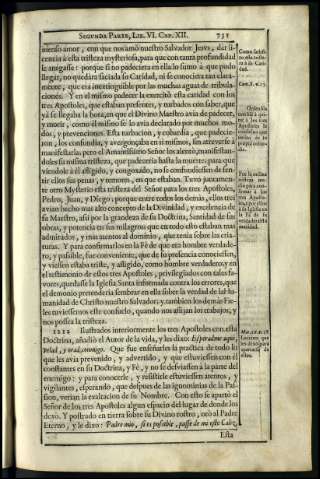 SEGUNDA PARTE, LIB. VI. CAP. XII. 731
menso amor, con que nos amò nuestro Salvador Jesus, dar li-
cencia à esta tristeza mysteriosa, para que con tanta profundidad
le anegasse: porque si no padeciera en ella lo sumo à que pudo
llegar, no quedàra saciada su Caridad, ni se conociera tan clara-
mente, que era inextinguible por las muchas aguas de tribula-
ciones. Y en el mismo padecer la exercitò esta caridad con los
tres Apostoles, que estaban presentes, y turbados con saber, que
yà se llegaba la hora, en que el Divino Maestro avia de padecer,
y morir, como èl mismo se lo avia declarado por muchos mo-
dos, y prevenciones. Esta turbacion, y cobardia, que padecie-
ron, los confundia, y avergonzaba en sì mismos, sin atreverse à
manifestarla: pero el Amantissimo Señor los alentò, manifestan-
doles su misma tristeza, que padeceria hasta la muerte: para que
viendole à èl afligido, y congoxado, no se confundiessen de sen-
tir ellos sus penas, y temores, en que estaban. Tuvo juntamen-
te otro Mysterio esta tristeza del Señor para los tres Apostoles,
Pedro, Juan, y Diego: porque entre todos los demàs, ellos tres
avian hecho mas alto concepto de la Divinidad, y excelencia de
su Maestro, assi por la grandeza de su Doctrina, Santidad de sus
obras, y potencia en sus milagros: que en todo esto estaban mas
admirados, y mas atentos al dominio, que tenia sobre las cria-
turas. Y para confirmarlos en la Fè de que era hombre verdade-
ro, y passible, fue conveniente, que de su presencia conociessen,
y viessen estaba triste, y afligido, como hombre verdadero: y en
el testimonio de estos tres Apostoles, privilegiados con tales fa-
vores, quedasse la Iglesia Santa informada contra los errores, que
el demonio pretenderia sembrar en ella sobre la verdad de la Hu-
manidad de Christo nuestro Salvador: y tambien los demàs Fie-
les tuviessemos este consuelo, quando nos afligen los trabajos, y
nos possea la tristeza.
1212 Ilustrados interiormente los tres Apostoles con esta
Doctrina, añadiò el Autor de la vida, y les dixo: Esperadme aqui,
velad, y orad conmigo. Que fue enseñarles la practica de todo lo
que les avia prevenido, y advertido, y que estuviessen con èl
constantes en su Doctrina, y Fè, y no se desviassen à la parte del
enemigo: y para conocerle, y resistirle estuviessen atentos, y
vigilantes, esperando, que despues de las ignominias de la Pas-
sion, verian la exaltacion de su Nombre. Con esto se apartò el
Señor de los tres Apostoles algun espacio del lugar de donde los
dexò. Y postrado en tierra sobre su Divino rostro, orò al Padre
Eterno, y le dixo: Padre mio, si es possible, passe de mi este Caliz.
Esta
Cant. 8. v. 7.